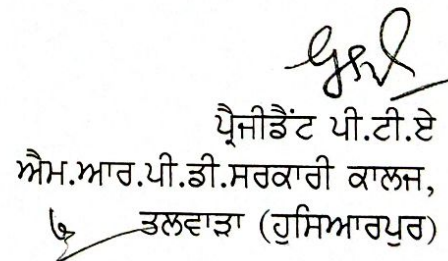 ਪ੍ਰੈਜੀਡੈਂਟ ਪੀ.ਟੀ.ਏ
ਐਮ.ਆਰ.ਪੀ.ਡੀ.ਸਰਕਾਰੀ ਕਾਲਜ,
ਤਲਵਾੜਾ (ਹੁਸਿਆਰਪੁਰ)